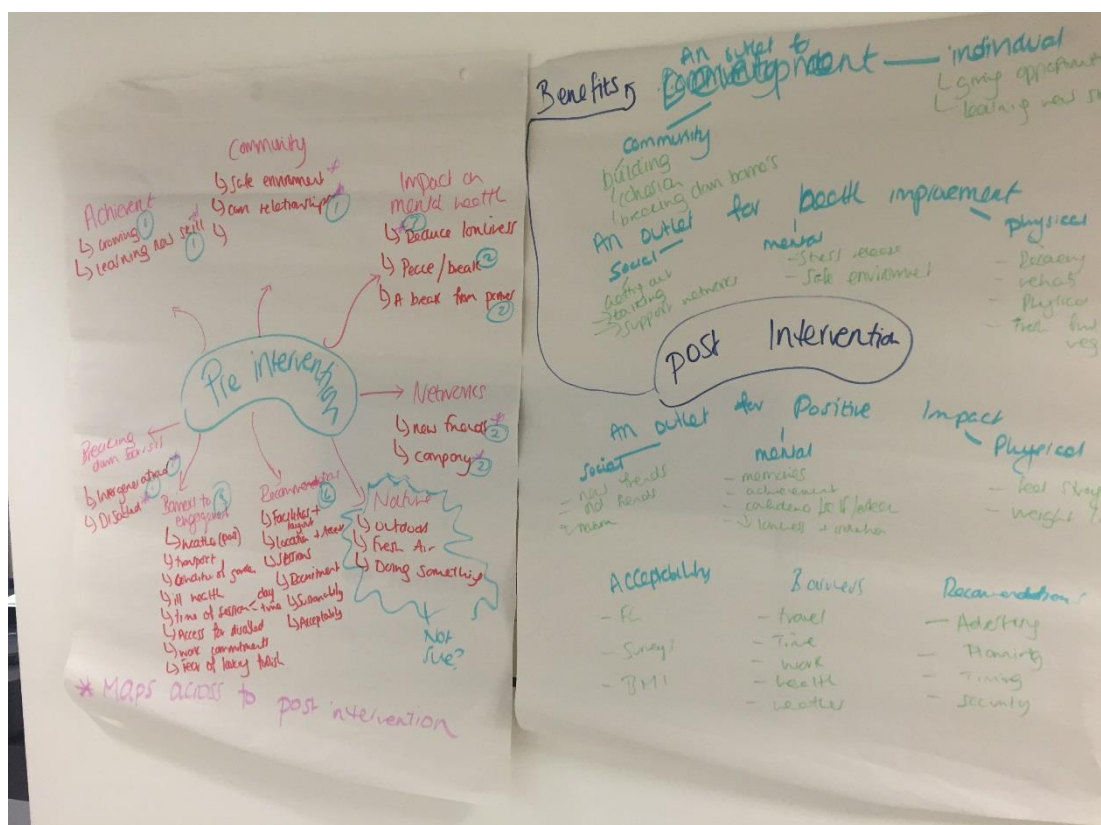 Community
↳ Safe environment *
↳ own relationships * 1
↳
Achievent
↳ Growing 1
↳ Learning new skill * 1
Impact on
mental health
* 2
↳ Reduce lonliness
↳ Peace/break 2
↳ A break from 2
Pre intervention
Networks
↳ new friends * 2
↳ company * 2
Breaking
down
↳ Intergenerational * 1
↳ Disabled * 1
Barriers to 3
engagement
↳ weather (poor)
↳ transport
↳ Condition of garden
↳ ill health
↳ time of session < day time
↳ Access for disabled
↳ work commitments
↳ Fear of looking
Recommendations 6
↳ Facilities + layout
↳ Location + Access
↳ Sessions
↳ Recruitment
↳ Sustainability
↳ Acceptability
Nature
↳ Outdoors
↳ Fresh Air
↳ Doing something
Not
sue?
* Maps across to post intervention
Benefits
An outlet to
Development — individual
↳ giving
↳ learning new
community
building
cohesion
breaking down
An outlet for health improvement
Social
talking
→ support networks
mental
- Stress release
- Safe environment
physical
- Recovery
- rehab
- Physical
- Fresh
veg
post Intervention
An outlet for Positive Impact
Social
- new friends
- old friends
mental
- memories
- achievement
- ↓ + isolation
Physical
- feel
- weight
Acceptability
- FG
- Surveys
- BMI
Barriers
- travel
- Time
- work
- health
- weather
Recomendations
- Planning
- Timing
- security